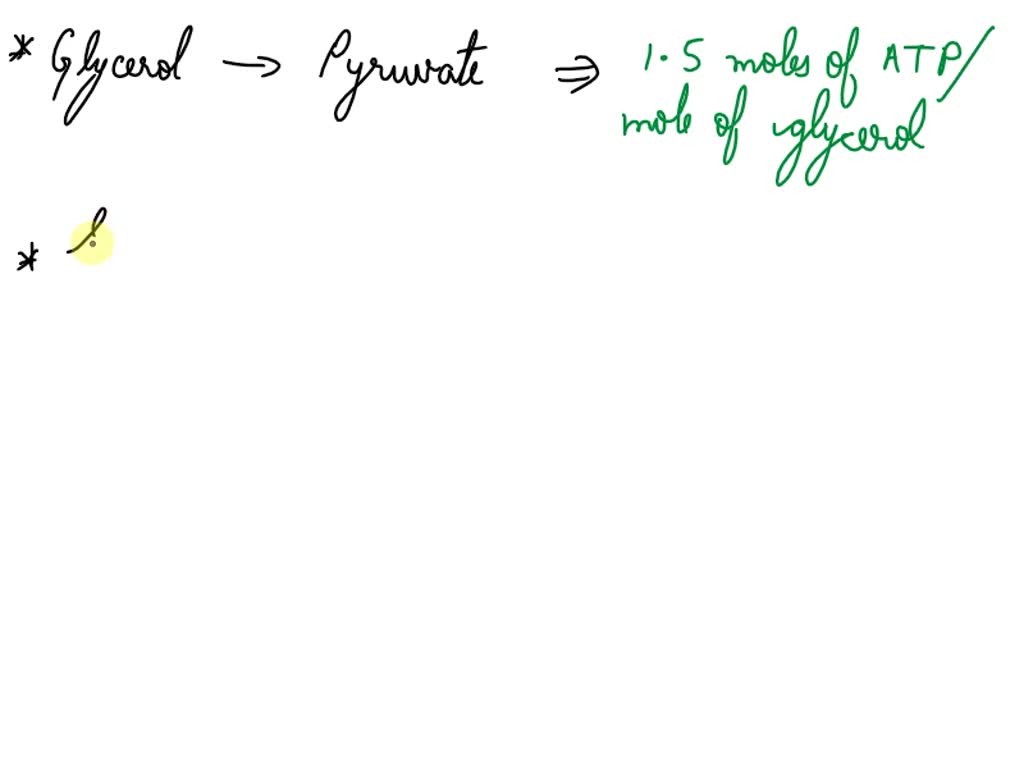 * Glycerol → Pyruvate ⇒ 1.5 moles of ATP/
mole of glycerol
*